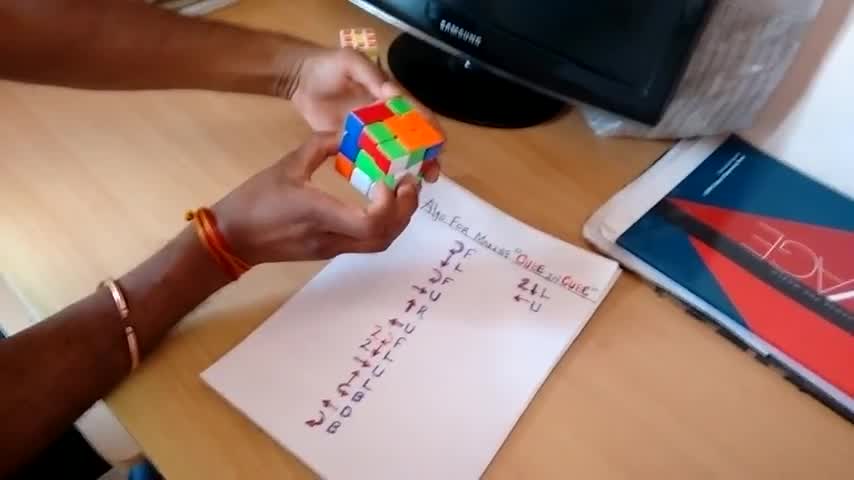 SAMSUNG
Algo For Making "CUBE IN CUBE"
F
L
F
U
R
U
2 F
2 L
U
L
B
D
B
2 L
U
AGE